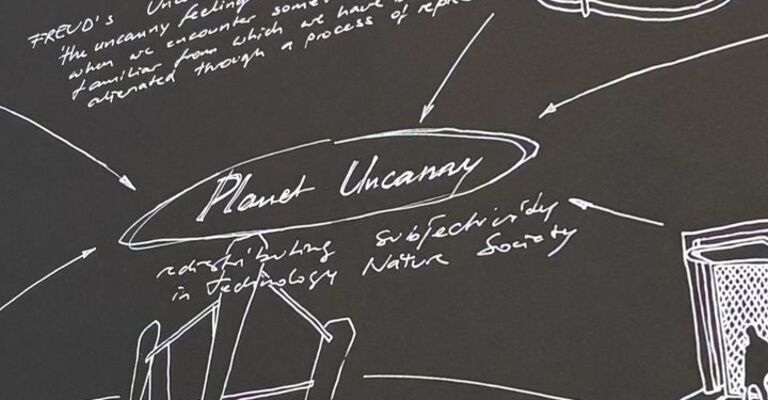 FREUD'S Unc
'the uncanny feeling
when we encounter some
familiar from which we have b
alienated through a process of repre
Planet Uncanny
redistributing subjectividy
in Technology Nature Society